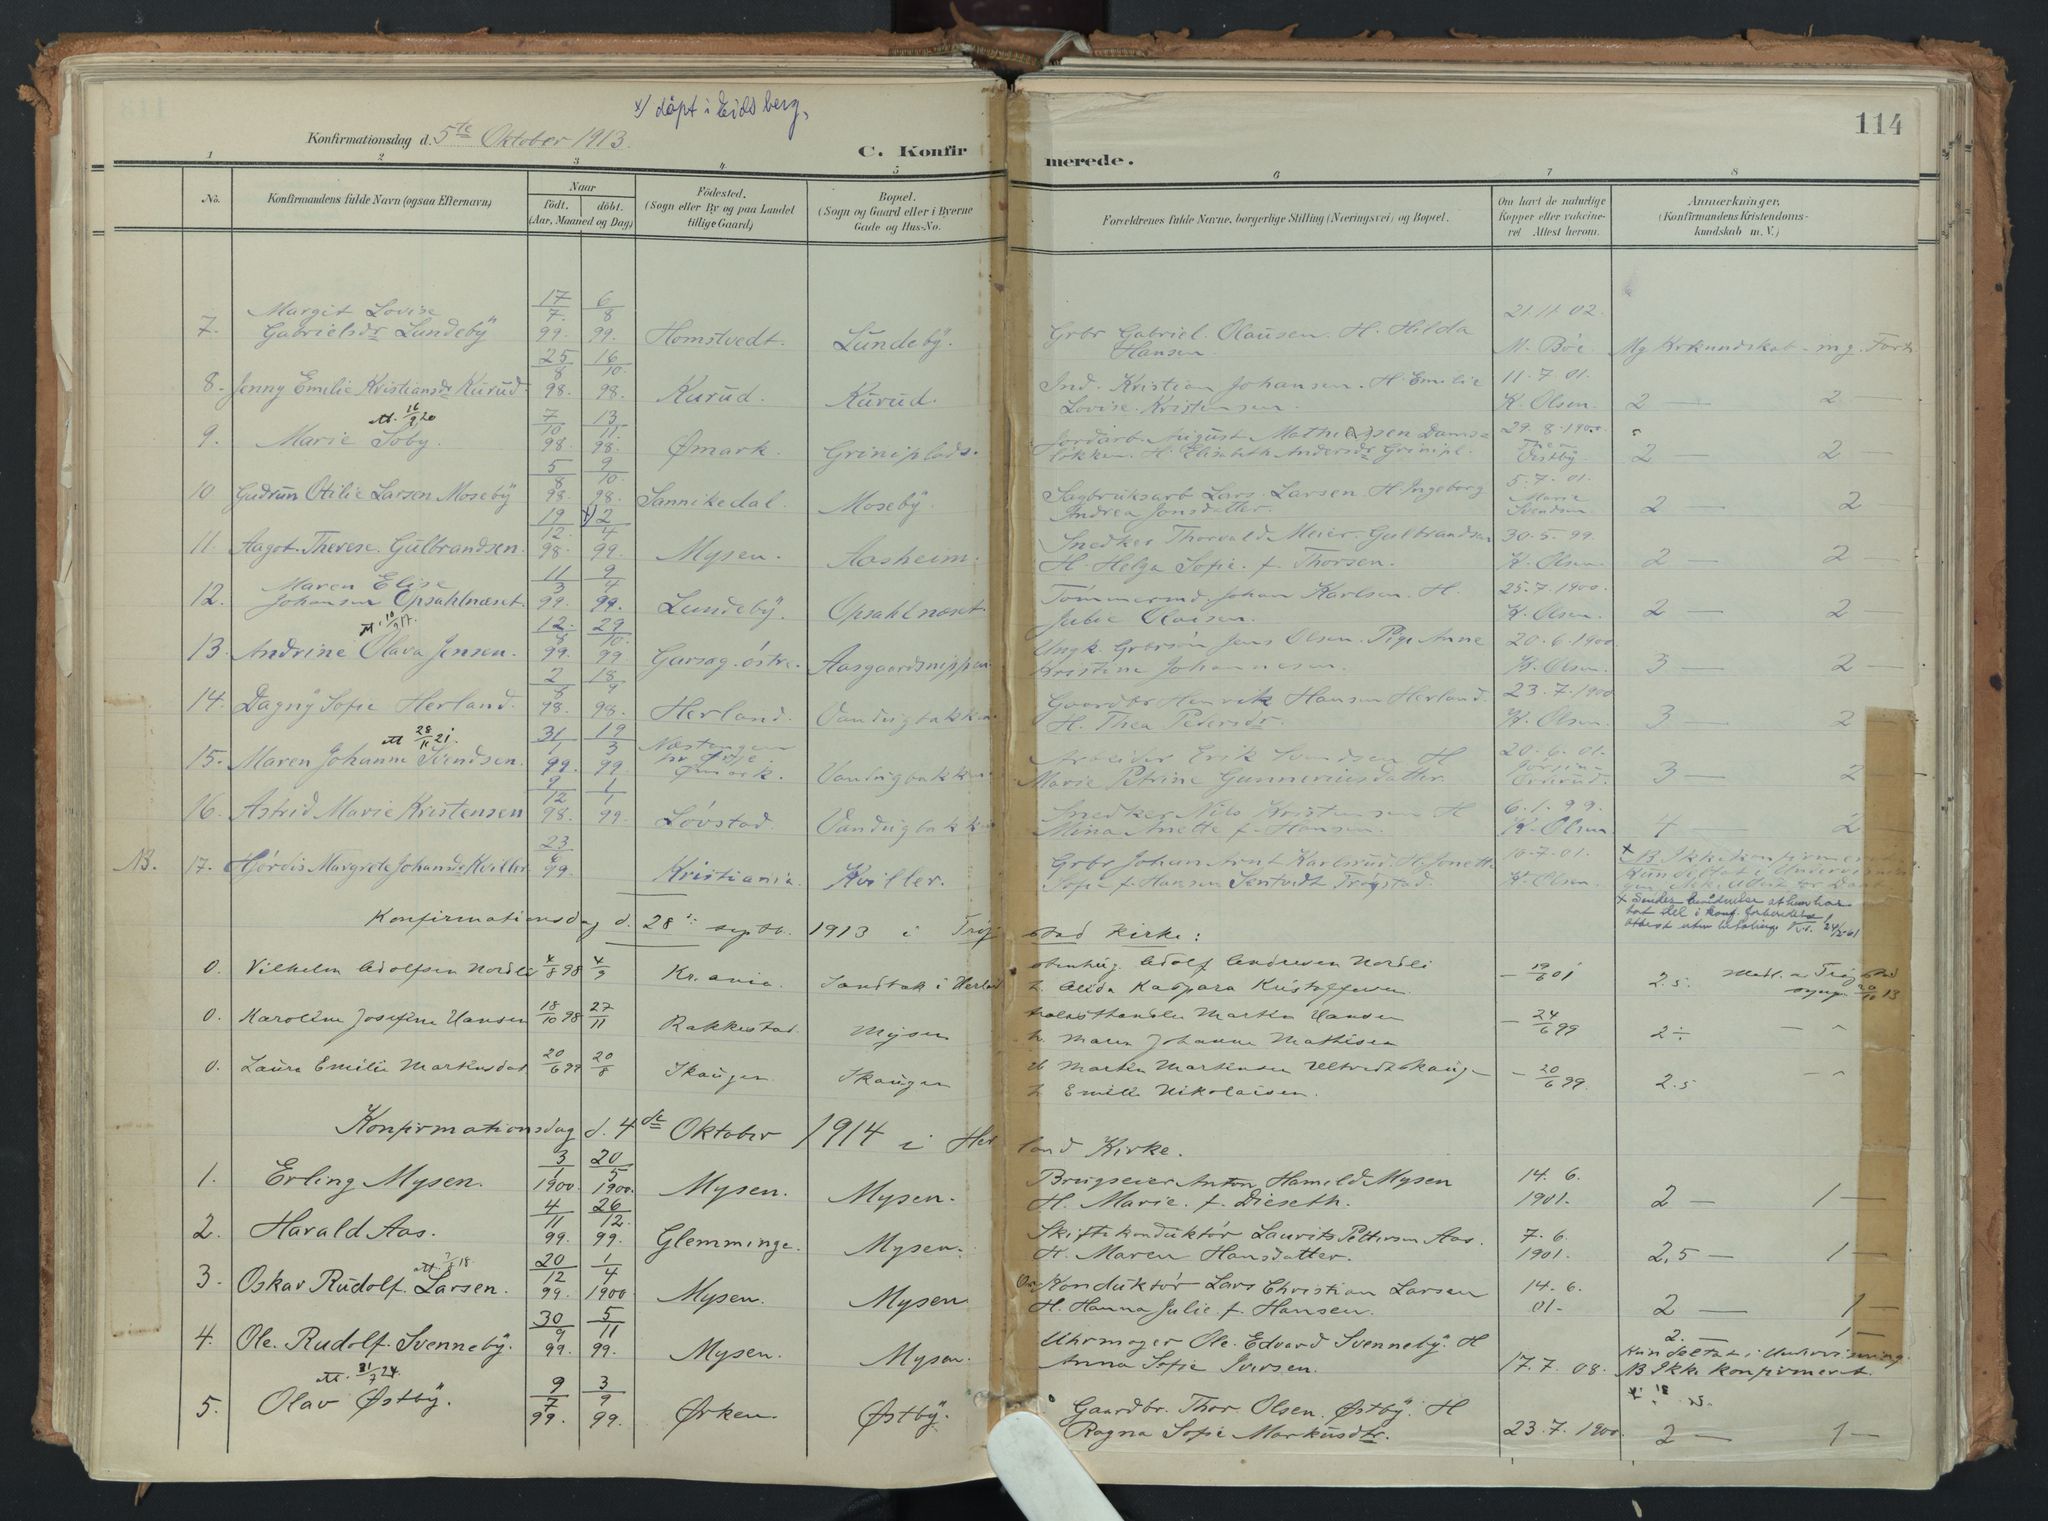 x/ döpt i Eidsberg.
114
Konfirmationsdag d. 5te Oktober 1913.
C. Konfirmerede.
1 2 3 4 5 6 7 8
No.
Konfirmandens fulde Navn (ogsaa Efternavn)
Naar
födt. döbt.
(Aar, Maaned og Dag)
Födested.
(Sogn eller By og paa Landet
tillige Gaard)
Bopæl.
(Sogn og Gaard eller i Byerne
Gade og Hus-No.
Forældrenes fulde Navne, borgerlige Stilling (Næringsvei) og Bopæl.
Om havt de naturlige
Kopper eller vakcine-
ret Attest herom.
Anmærkninger.
(Konfirmandens Kristendoms-
kundskab m. V.)
Margit Lovise 17/7 6/8 21.11.02.
7. Gabrielsdr Lundeby 99. 99. Homstvedt. Lundeby. Grbr Gabriel Olausen. H. Hilda
Hansen. M. Böe Mg Krkundskab - mg. Forh
25/8 16/10
8. Jenny Emilie Kristiansdr Kurud. 98. 98. Kurud. Kurud. Ind. Kristian Johansen. H. Emilie 11.7.01.
Lovise Kristensen. K. Olsen. 2 — 2 —
16/9 20 7/10 13/11
9. Marie Soby. 98. 98. Ømark. Griniplads. Jordarb. August Mathiesen Dams- 29.8.1900.
løkken. H. Elisabeth Andersdr Grinipl. Thea Østby. 2 — 2 —
5/8 9/10
10 Gudrun Otilie Larsen Moseby 98. 98. Sannikedal. Moseby. Sagbruksarb Lars Larsen. H. Ingeborg 5.7.01.
Andrea Jonsdatter. Marie Svendsen 2 — 2
19/12 x) 2/4
11. Aagot Therese Gulbrandsen. 98. 99. Mysen. Aasheim. Snedker Thorvald Meier Gulbrandsen 30.5.99.
H. Helga Sofie f. Thorsen. K. Olsen 2 — 2 —
Maren Elise 11/3 9/4
12. Johansen Opsahlnæset. 99. 99. Lundeby. Opsahlnæset. Tömmermd. Johan Karlsen. H. 25.7.1900.
Julie Olaisen. K. Olsen. 2 — 2 —
12/8 29/10
13. Andrine Olava Jensen. 99. 99 Garseg östre. Aasgaardsnippen Ungk. Grbrsön Jens Olsen. Pige Anne 20.6.1900
Kristine Johannesen. K. Olsen. 3 — 2 —
14. Dagny Sofie Herland. 98. 98. Herland. Vandugbakken Gaardbr Henrik Hansen Herland. 23.7.1900
H. Thea Pedersdr. K. Olsen. 3 — 2
28/11 21. 31/1 19/3
15. Maren Johanne Svendsen. 99. 99 Ømark. Vandugbakken Arbeider Erik Svendsen H 20.6.01.
Marie Petrine Gunneriusdatter. 3 — 2
16. Astrid Marie Kristensen 98. 99. Lövstad. Vandugbakken Snedker Nils Kristensen H 6.1.99.
Mina Anette f. Hansen. K. Olsen 4 — 2 —
NB. 17. Hjördis Margrete Johansdr Kviller 99. Kristiania. Kviller. Grbr Johan Arnt Karlsrud. H. Jonette 10.7.01.
Sofie f. Hansen Sentvedt Trögstad. K. Olsen. NB Ikke konfirmeret
Kun deltat i Undervisnin
Konfirmationsdag d. 28de septbr. 1913 i Trögstad Kirke:
0. Vilhelm Adolfsen Nordli 4/8 98 4/9 Kr.ania. Sandbak i Herland Adolf Andresen Nordli — 19/6 01
h. Alida Kaspara Kristoffersen. 2.5. Medl. a Trögstad 20/10 13
0. Karoline Josefine Hansen 18/10 98 27/11 Rakkestad. Mysen Martin Hansen — 24/6 99
h. Maren Johanne Mathisen 2 ÷
0. Laura Emilie Martinsdat 20/6 99 20/8 Skaugen. Skaugen Martin Martinsen — 20/6 99.
h. Emilie Nikolaisen. 2.5
Konfirmationsdag d. 4de Oktober 1914 i Herland Kirke.
3/1 20/5
1. Erling Mysen. 1900. 1900. Mysen. Mysen. Brugseier Anton Hamild Mysen 14.6.
H. Marie f. Dieseth. 1901. 2 — 1 —
4/11 26/12
2. Harald Aas. 99. 99. Glemminge. Mysen. Skiftekonduktör Laurits Petterson Aas. 7.6.
H. Maren Hansdatter. 1901. 2,5 — 1 —
20/12 1/4
3. Oskar Rudolf Larsen. 99. 1900 Mysen. Mysen. Konduktör Lars Christian Larsen 14.6.
H. Hanna Julie f. Hansen. 01- 2 — 1 —
30/9 5/11 2. 1 —
4. Ole Rudolf Svenneby. 99. 99. Mysen. Mysen. Uhrmager Ole Edvard Svenneby. H Kun deltat i Undervisning.
Anna Sofie Iversen. 17.7.08. NB Ikke konfirmeret.
31/7 24 9/7 3/9
5. Olav Østby. 99. 99. Ørken. Østby. Gaardbr. Thor Olsen Østby. H
Ragna Sofie Markusdtr. 23.7.1900. 2 — 1 —